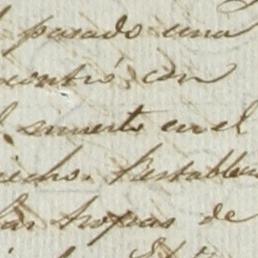 pasado una
contró, con
muerto en el
hecho. Restablec
las tropas de